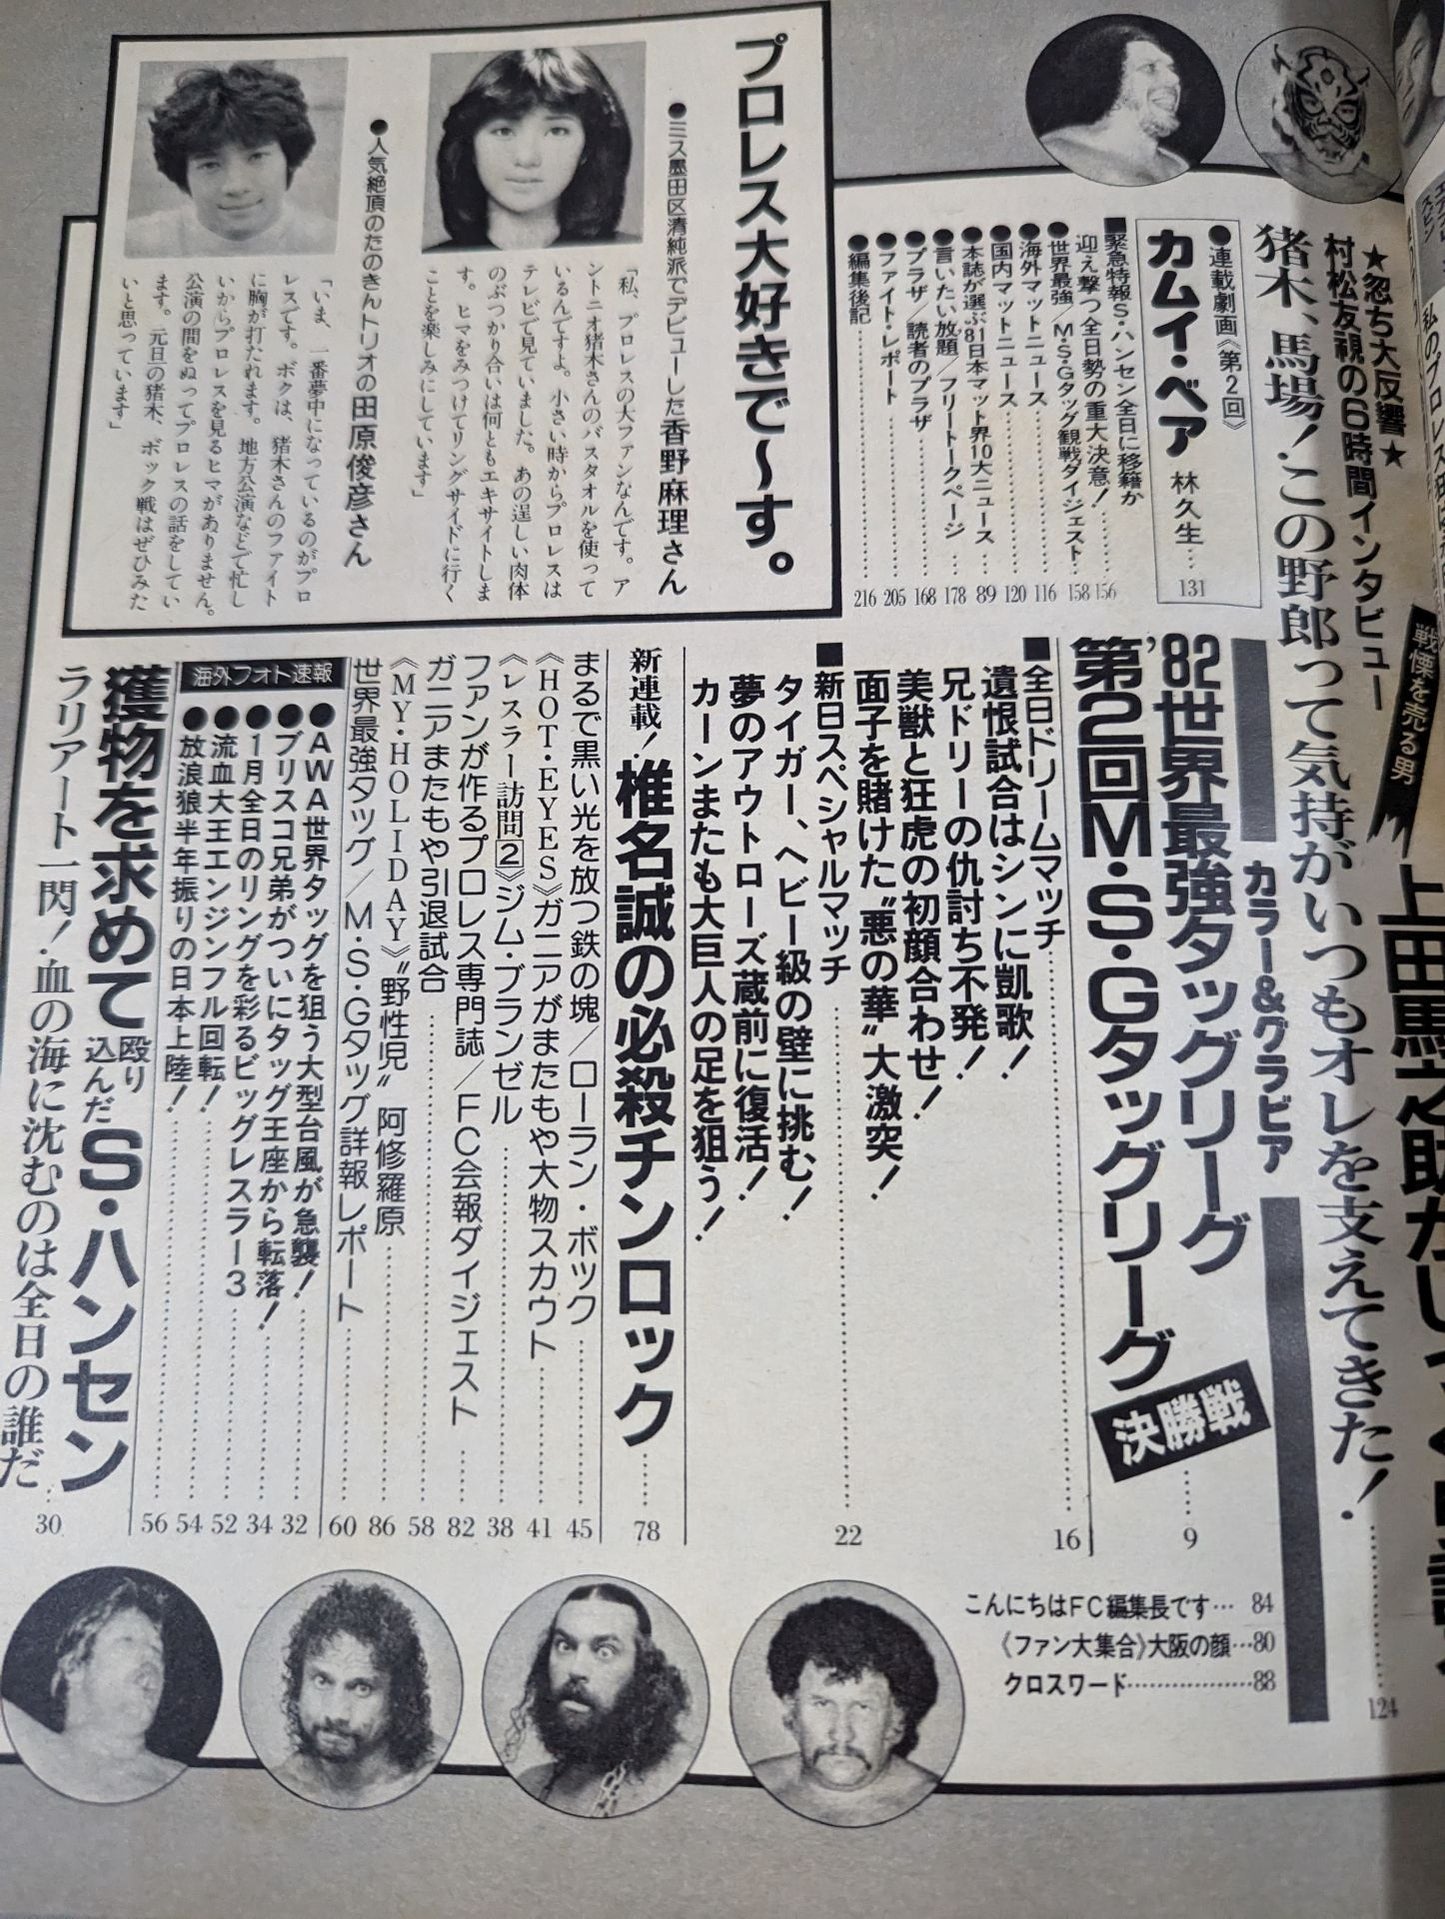 ★忽ち大反響★
村松友視の6時間インタビュー
猪木、馬場！この野郎って気持がいつもオレを支えてきた！
124
戦慄を売る男
●連載劇画《第2回》
カムイ・ベア 林久生…131
■緊急特報S・ハンセン全日に移籍か
迎え撃つ全日勢の重大決意！……156
●世界最強／M・S・Gタッグ観戦ダイジェスト…158
●海外マットニュース……116
●国内マットニュース……120
●本誌が選ぶ'81日本マット界10大ニュース…89
●言いたい放題／フリートークページ…178
●プラザ／読者のプラザ……168
●ファイト・レポート……205
●編集後記……216
プロレス大好きで～す。
●ミス墨田区清純派でデビューした香野麻理さん
「私、プロレスの大ファンなんです。ア
ントニオ猪木さんのバスタオルを使って
いるんですよ。小さい時からプロレスは
テレビで見ていました。あの逞しい肉体
のぶつかり合いは何ともエキサイトしま
す。ヒマをみつけてリングサイドに行く
ことを楽しみにしています」
●人気絶頂のたのきんトリオの田原俊彦さん
「いま、一番夢中になっているのがプロ
レスです。ボクは、猪木さんのファイト
に胸が打たれます。地方公演などで忙し
いからプロレスを見るヒマがありません。
公演の間をぬってプロレスの話をしてい
ます。元旦の猪木、ボック戦はぜひみた
いと思っています」
カラー&グラビア
'82世界最強タッグリーグ
第2回M・S・Gタッグリーグ
決勝戦
9
■全日ドリームマッチ……16
遺恨試合はシンに凱歌！
兄ドリーの仇討ち不発！
美獣と狂虎の初顔合わせ！
面子を賭けた“悪の華”大激突！
■新日スペシャルマッチ……22
タイガー、ヘビー級の壁に挑む！
夢のアウトローズ蔵前に復活！
カーンまたも大巨人の足を狙う！
新連載！椎名誠の必殺チンロック……78
まるで黒い光を放つ鉄の塊／ローラン・ボック……45
《HOT・EYES》ガニアがまたもや大物スカウト……41
《レスラー訪問2》ジム・ブランゼル……38
ファンが作るプロレス専門誌／FC会報ダイジェスト……82
ガニアまたもや引退試合……58
《MY・HOLIDAY》“野性児”阿修羅原……86
世界最強タッグ／M・S・Gタッグ詳報レポート……60
海外フォト速報
●AWA世界タッグを狙う大型台風が急襲！……32
●ブリスコ兄弟がついにタッグ王座から転落！……34
●1月全日のリングを彩るビッグレスラー3……52
●流血大王エンジンフル回転！……54
●放浪狼半年振りの日本上陸！……56
獲物を求めて殴り込んだS・ハンセン
ラリアート一閃！血の海に沈むのは全日の誰だ…30
こんにちはFC編集長です…84
《ファン大集合》大阪の顔…80
クロスワード……88